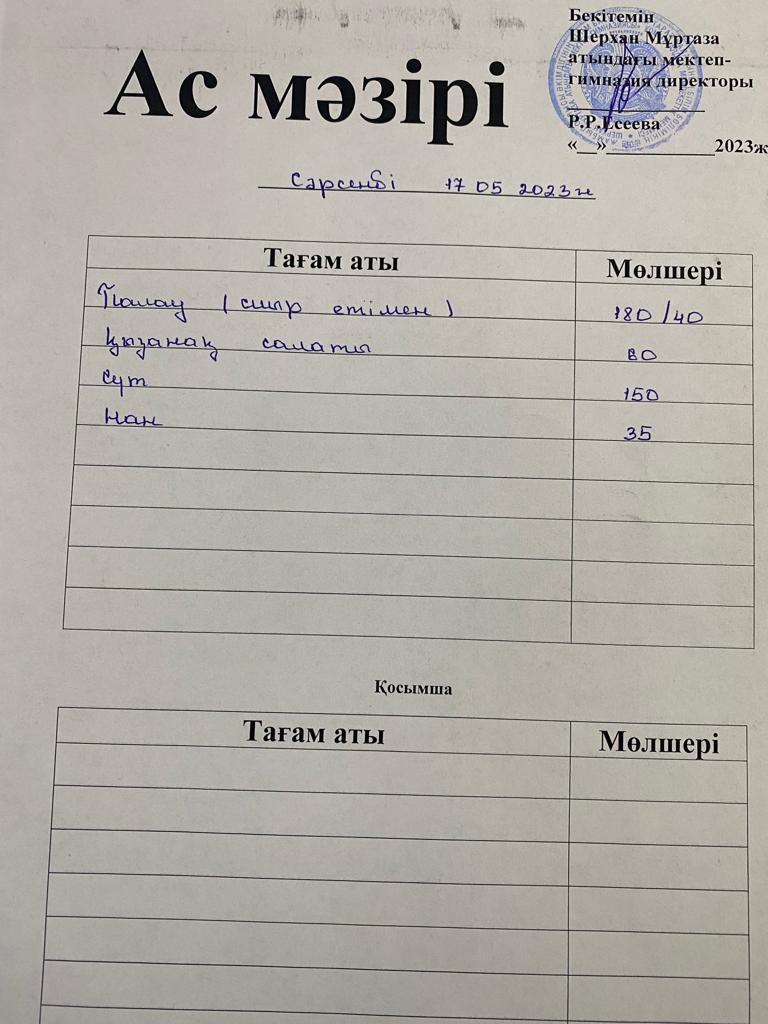 Бекітемін
Шерхан Мұртаза
атындағы мектеп-
гимназия директоры
Р.Р.Есеева
«__»____________2023ж
Ас мәзірі
Сәрсенбі 17 05 2023ж
Тағам аты Мөлшері
Палау (сиыр етімен) 180/40
Қызанақ салаты 80
Сүт 150
Нан 35
Қосымша
Тағам аты Мөлшері